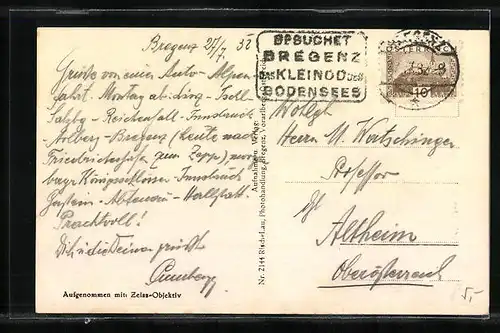 Bregenz 27/7 32
Grüße von einer Auto-Alpen-
fahrt. Montag ab Linz-Ischl-
Salzbg-Reichenhall-Innsbruck
Arlberg-Bregenz (heute nach
Friedrichshafen zum Zepp.) morg
bayr Königsschlösser-Innsbruck
Gastein-Abtenau-Hallstatt.
Prachtvoll!
grüßt
Aufgenommen mit: Zeiss-Objektiv
Aufnahme u. Verlag:
Nr. 2144 Risch-Lau, Photohandlung, Bregenz, Vorarlberg
BESUCHET
BREGENZ
DAS KLEINOD DES
BODENSEES
BREGENZ
10
Wohlgb
Herrn M. Wertschinger
Professor
Altheim
Oberösterreich
5,-